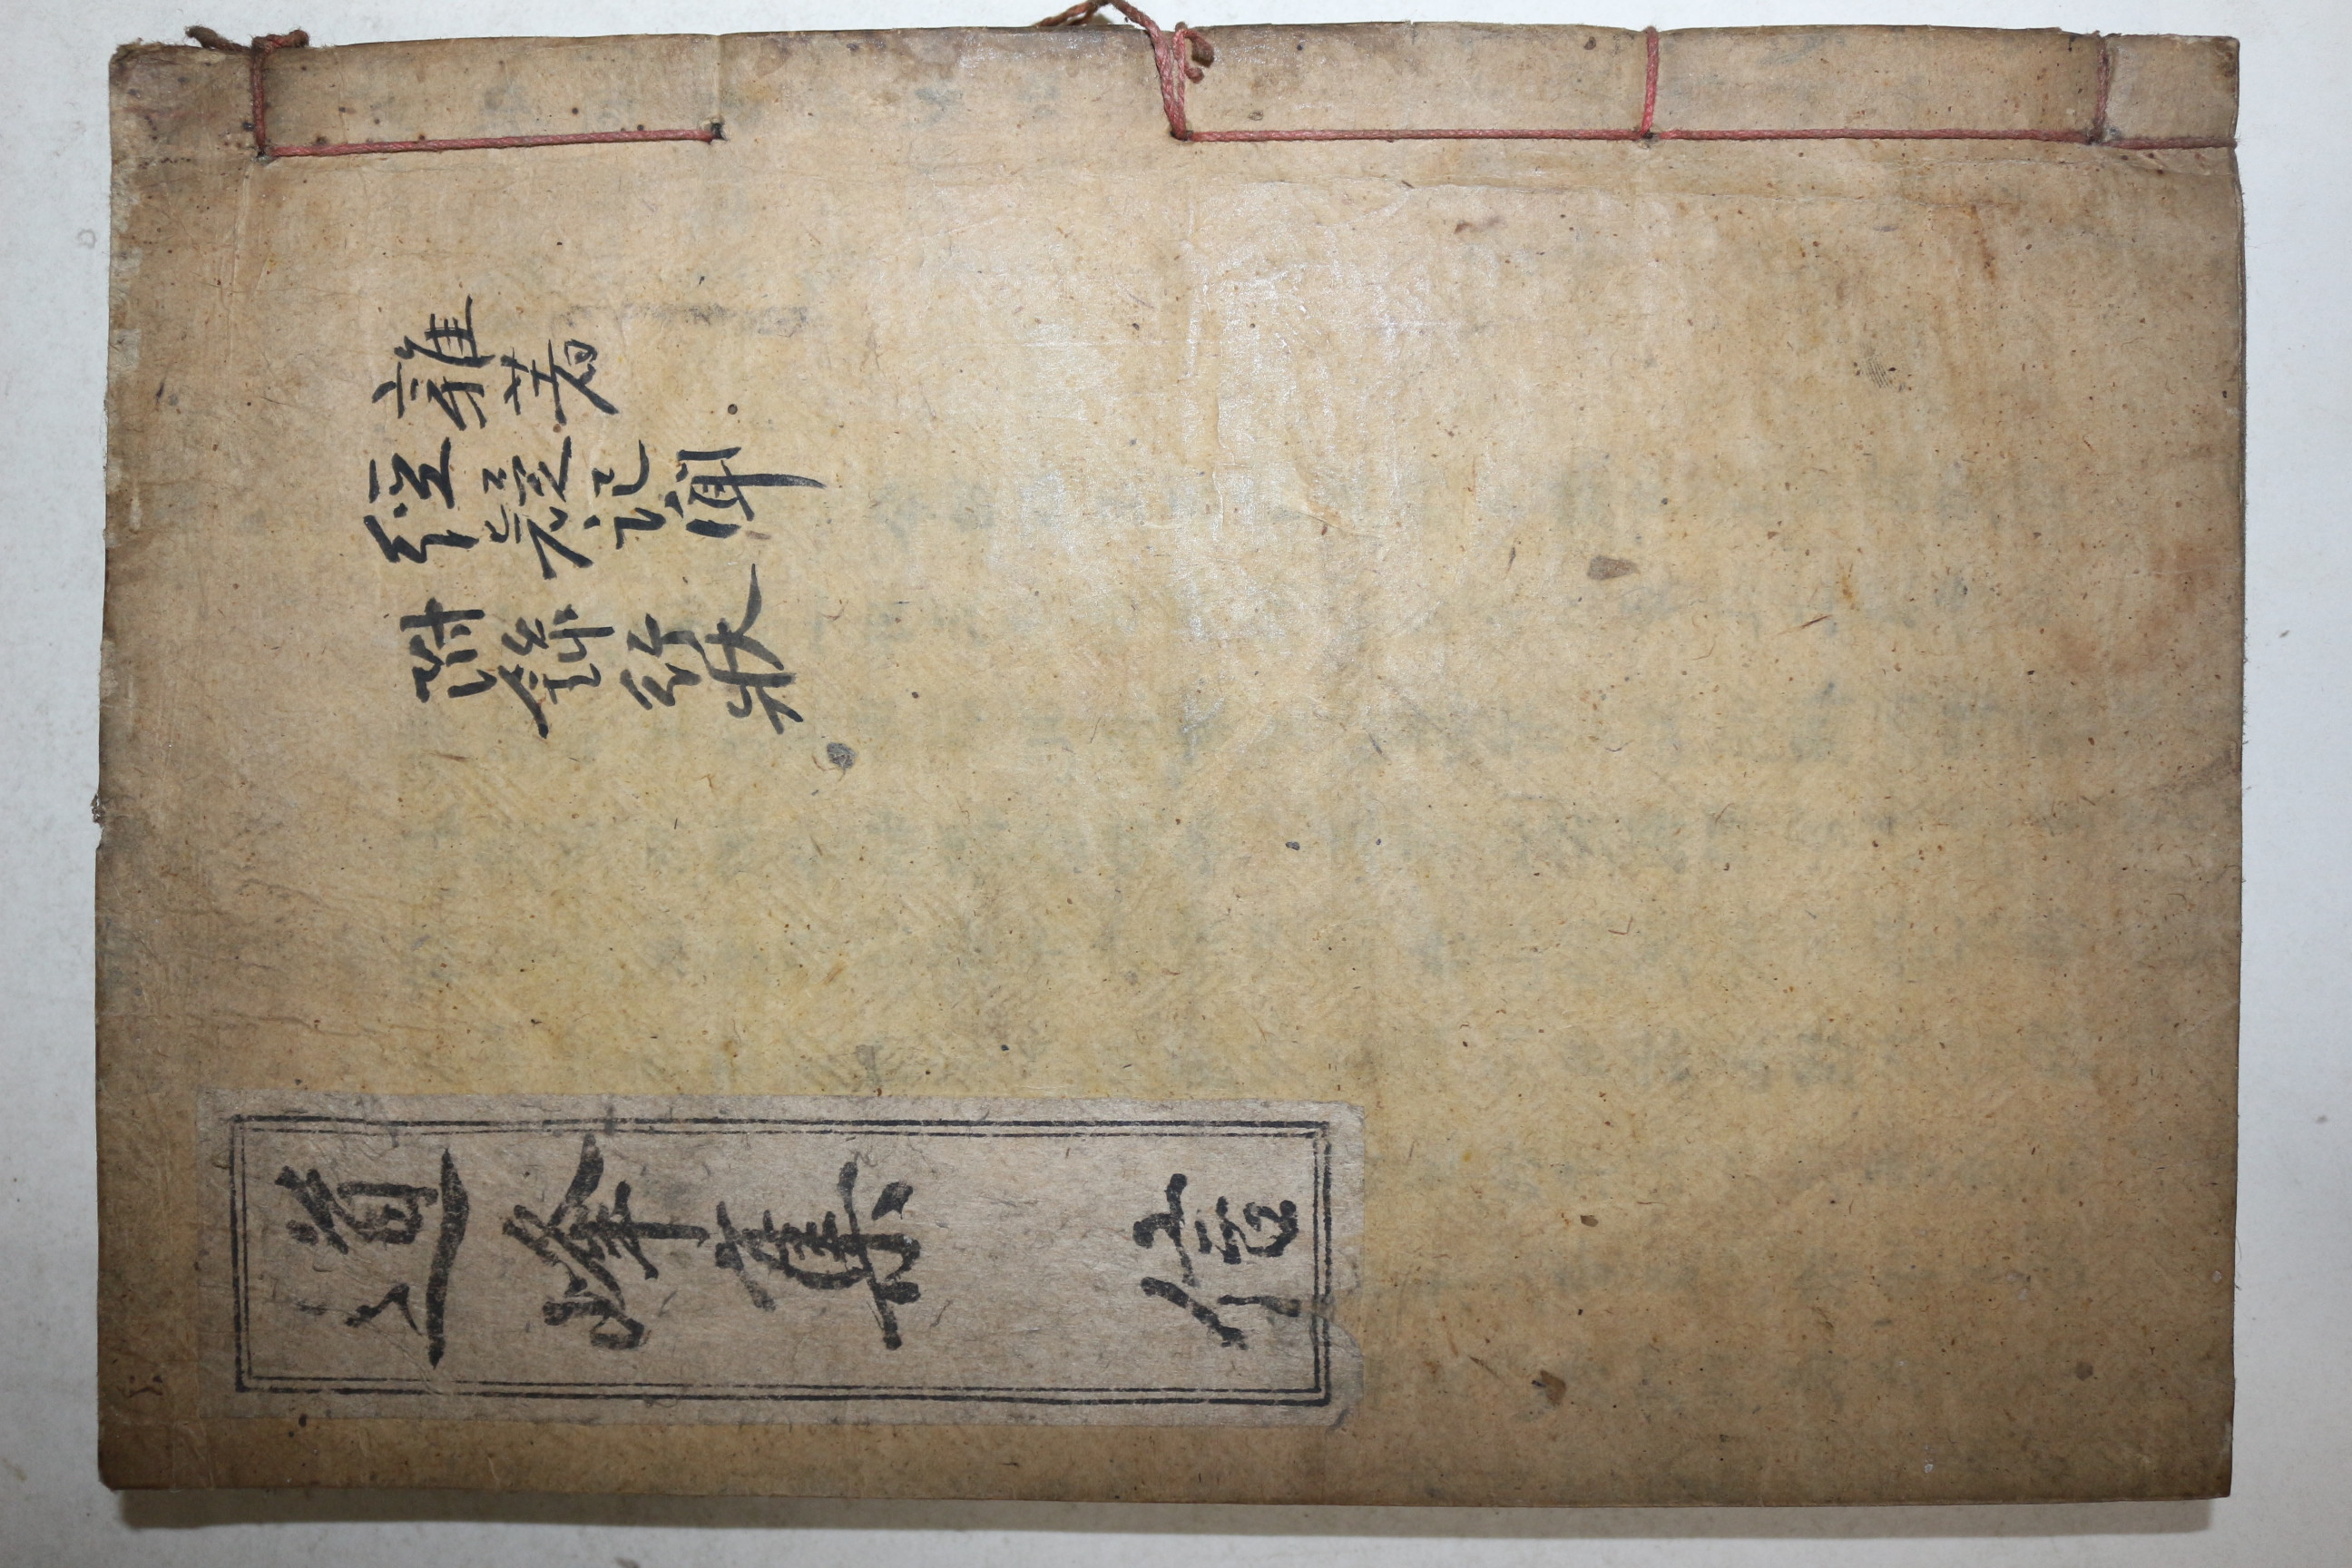 雜著
經疑記聞
附錄行狀
道峰集 信